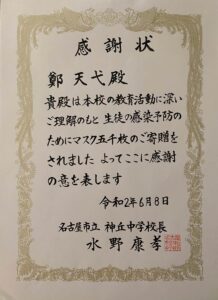 感謝状
鄭 天弋殿
貴殿は本校の教育活動に深い
ご理解のもと 生徒の感染予防の
ためにマスク五千枚のご寄贈を
されました よってここに感謝
の意を表します
令和2年6月8日
名古屋市立 神丘中学校長
水野康孝